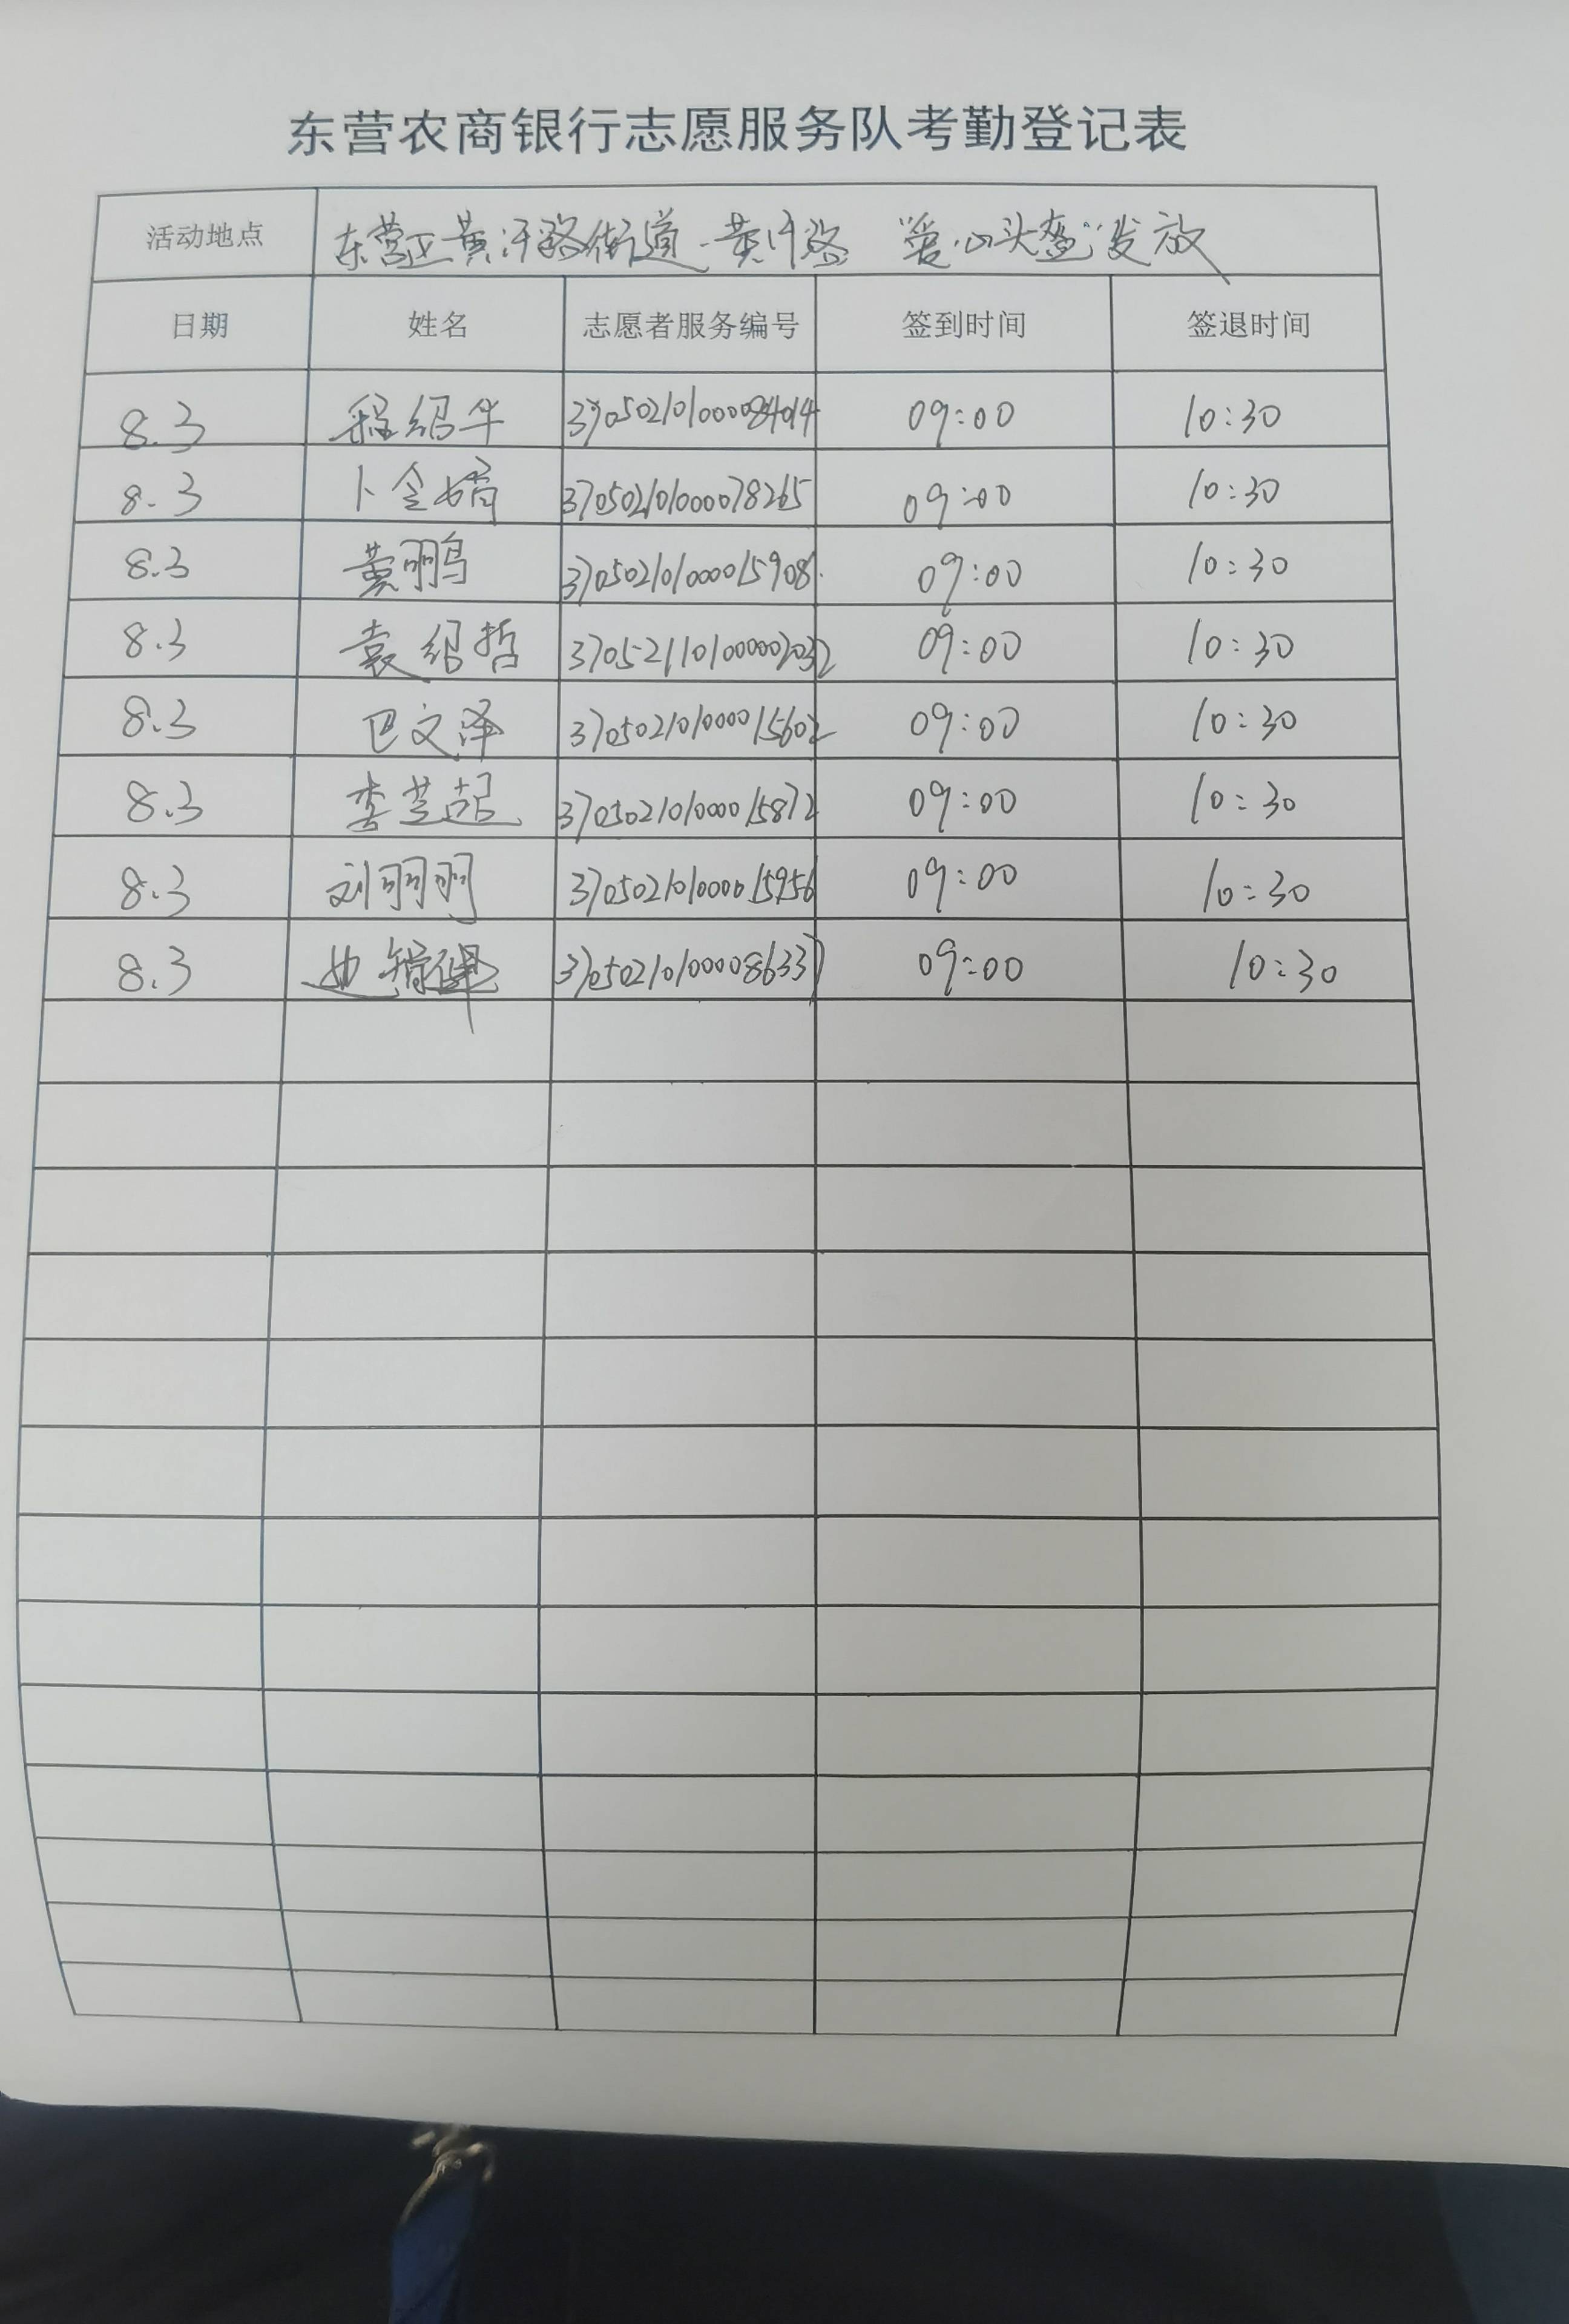 东营农商银行志愿服务队考勤登记表
活动地点 东营区黄河路街道-黄河路 "爱心头盔"发放
日期 姓名 志愿者服务编号 签到时间 签退时间
8.3 程绍华 09:00 10:30
8.3 卜令婧 370502101000078265 09:00 10:30
8.3 黄鹏 370502101000015908 09:00 10:30
8.3 袁绍哲 09:00 10:30
8.3 巴文泽 370502101000015602 09:00 10:30
8.3 李芝喆 370502101000015872 09:00 10:30
8.3 刘丽丽 370502101000015956 09:00 10:30
8.3 370502101000086337 09:00 10:30